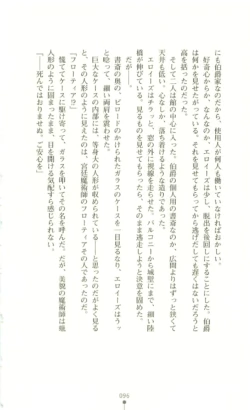 にも伯爵家なのだから、使用人が何人も働いていなければおかしい。
好奇心からか、なんなのか、エロイーズは少し、脱出を後回しにすることにした。伯爵
は何かを見せたがっている。それを見せてもらってから逃げだしても遅くはないだろうと
高を括ったのだった。
そして二人は館の中心に入った。伯爵の個人用の書斎なのか、広間よりはずっと狭くて
天井も低い、心なしか、落ち着けるような造りであった。
エロイーズはチラッと、窓の外に視線を走らせた。バルコニーから城壁にまで、細い陸
橋が伸びている。見るものを見せてもらったら、そのまま逃走しようと決意を固めた。
だが――。
書斎の奥の、ビロードのかけられたガラスのケースを一目見るなり、エロイーズはウッ
と唸って、細い両肩を震わせた。
巨大なケースの内部には、等身大の人形が収められている――と思ったのだがよく見る
と、その人形のように見えたのは、宮廷魔術師のフローティアその人であったのだ。
「フローティア!?」
慌ててケースに駆け寄って、ガラスを叩いてその名を呼んだ。だが、美貌の魔術師は蝋
人形のように固まったまま、目を開ける気配すら感じられない。
「――死んではおりませぬ。ご安心を」